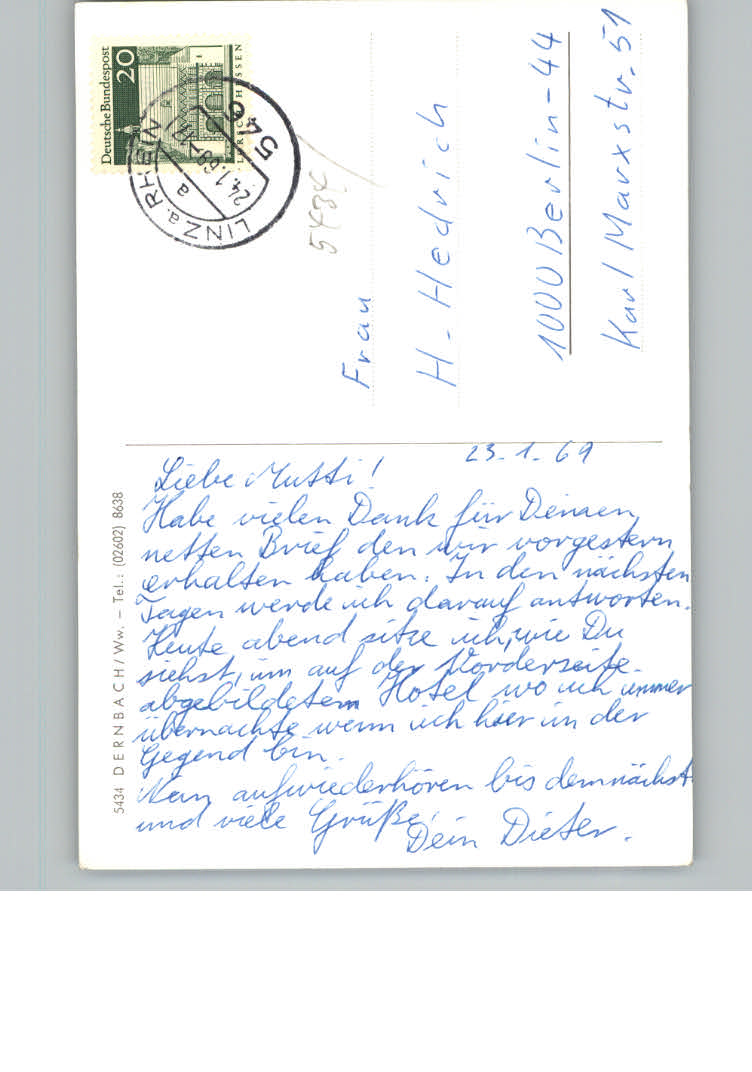 Deutsche Bundespost
20
LINZ a. RHEIN
a
24.1.68
546
5434
Frau
H. Hedrich
1000 Berlin-44
Karl Marxstr. 51
5434 DERNBACH/Ww. – Tel.: (02602) 8638
23.1.69
Liebe Mutti!
Habe vielen Dank für Deinen
netten Brief den wir vorgestern
erhalten haben. In den nächsten
Tagen werde ich darauf antworten.
Heute abend sitze ich, wie Du
siehst, im auf der Vorderseite
abgebildetem Hotel wo ich immer
übernachte wenn ich hier in der
Gegend bin.
Nun aufwiederhören bis demnächst
und viele Grüße,
Dein Dieter.